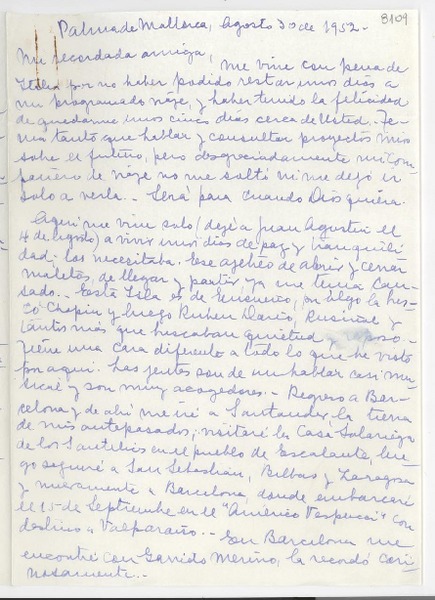 8109
Palma de Mallorca, Agosto 30 de 1952.-
Mi recordada amiga,
me vine con pena de
Italia por no haber podido restar unos días a
mi programado viaje, y haber tenido la felicidad
de quedarme unos cinco días cerca de Usted. Te-
nía tanto que hablar y consultar proyectos míos
sobre el futuro, pero desgraciadamente mi com-
pañero de viaje no me soltó ni me dejó ir
solo a verla.- Será para cuando Dios quiera.
Aquí me vine solo (dejé a Juan Agustín el
4 de Agosto) a vivir unos días de paz y tranquili-
dad; los necesitaba. Ese ajetreo de abrir y cerrar
maletas, de llegar y partir ya me tenía can-
sado.- Esta Isla es de Ensueño, por algo la bus-
có Chopin y luego Ruben Darío, Rusiñol y
tantos más que buscaban quietud y reposo.-
Tiene una cara diferente a todo lo que he visto
por aquí. Las gentes son de un hablar casi mu-
sical y son muy acogedores.- Regreso a Bar-
celona y de ahí me iré a Santander, la tierra
de mis antepasados; visitaré la Casa Solariega
de los Santelices en el pueblo de Escalante, lue-
go seguiré a San Sebastián, Bilbao y Zaragoza
y nuevamente a Barcelona, donde embarcaré
el 15 de Septiembre en el "Américo Vespucci" con
destino a Valparaíso.- En Barcelona me
encontré con Garrido Merino, la recordó cari-
ñosamente.-